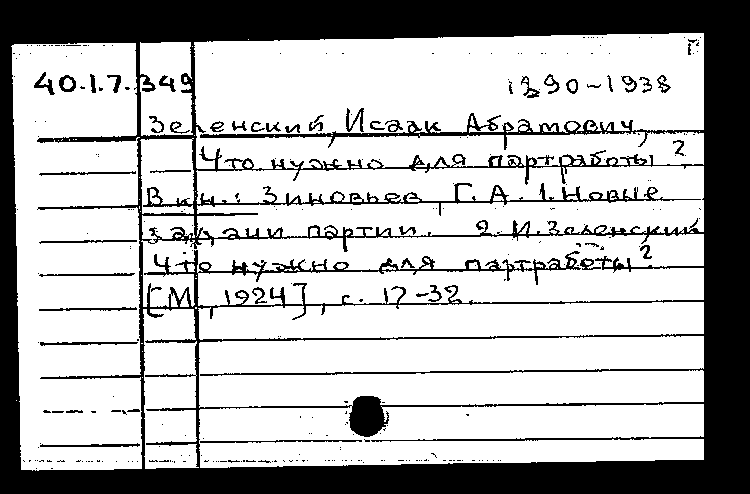 40.1.7.349 1890-1938
Зеленский, Исаак Абрамович,
Что нужно для партработы?
В кн.: Зиновьев, Г. А. 1. Новые
задачи партии. 2. И. Зеленский
Что нужно для партработы?
[М., 1924], с. 17-32.